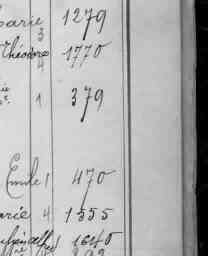 arie 3 1279
Théodore 4 1770
1 379
Emile 1 470
arie 4 1355
1640